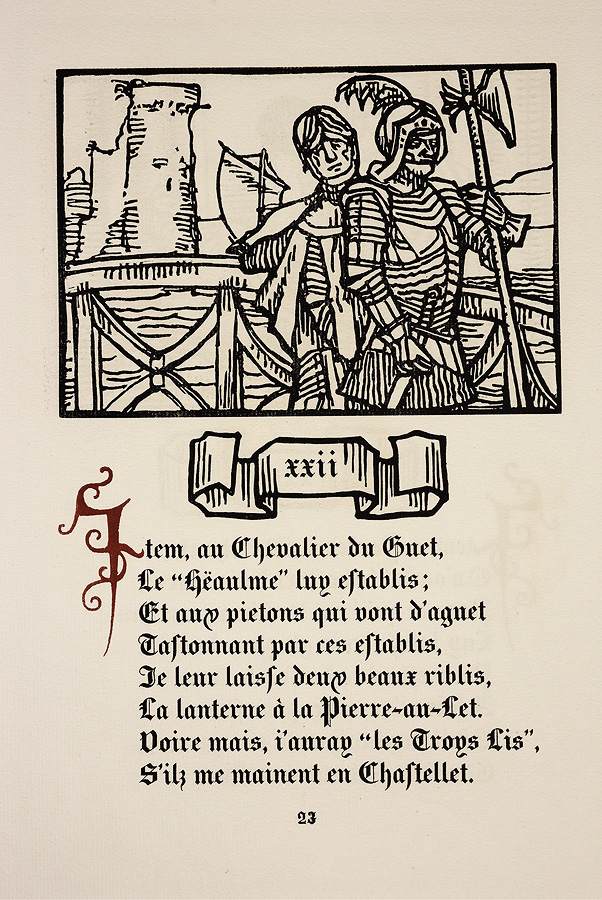 xxii
Item, au Chevalier du Guet,
Le “Hëaulme” luy eſtablis;
Et aux pietons qui vont d’aguet
Taſtonnant par ces eſtablis,
Je leur laiſſe deux beaux riblis,
La lanterne à la Pierre-au-Let.
Voire mais, i’auray “les Troys Lis”,
S’ilz me mainent en Chaſtellet.
23